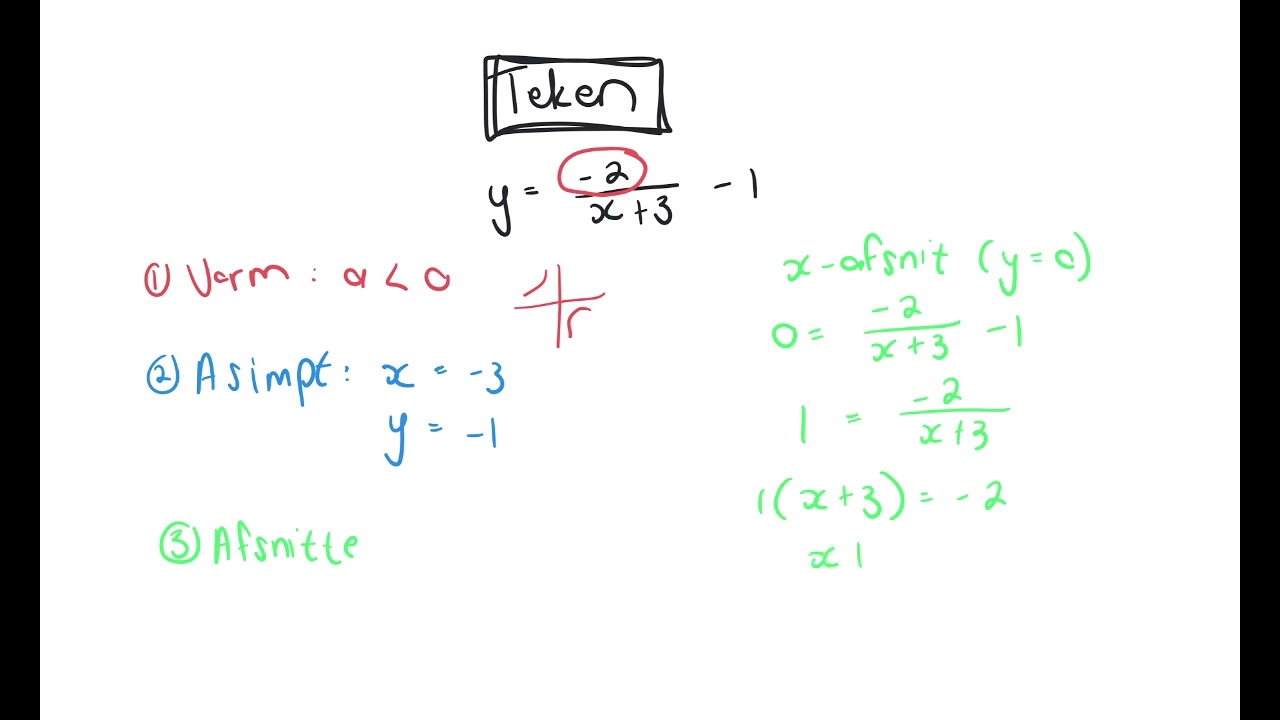 Teken
y = -2/(x+3) - 1
① Vorm : a < 0
② Asimpt : x = -3
y = -1
③ Afsnitte
x-afsnit (y=0)
0 = -2/(x+3) - 1
1 = -2/(x+3)
1(x+3) = -2
x 1